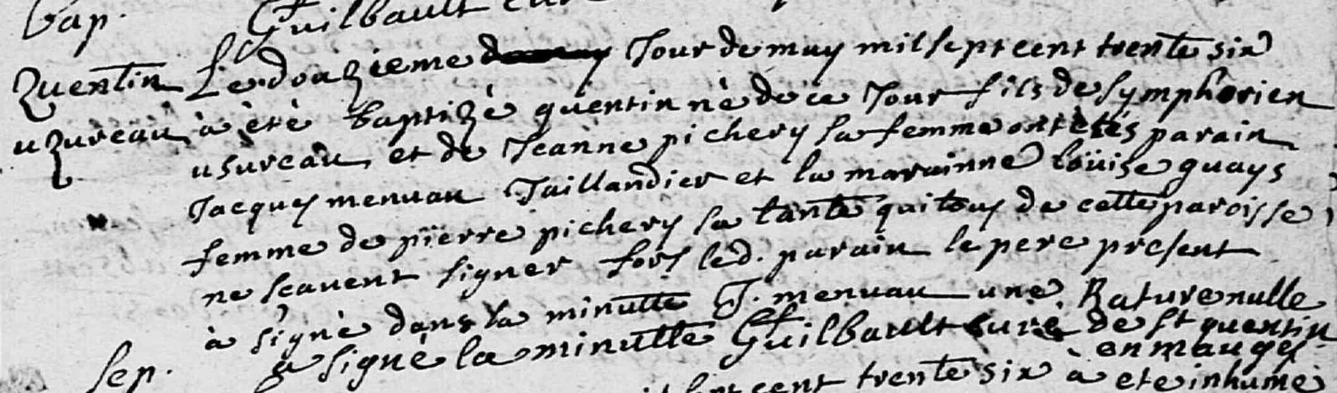 Bap. Guilbault curé
Quentin Le douzieme jour de may mil sept cent trente six
uzureau à èté baptizé quentin nè de ce jour fils de symphorien
usureau et de Jeanne pichery sa femme ont étés parain
Jacques menuau Taillandier et la marainne loüise guays
femme de pierre pichery sa tante qui tous de cette paroisse
ne scavent signer fors led. parain le pere present
à signé dans la minutte J. menuau une Rature nulle
a signé la minutte Guilbault curé de st quentin
en mauges
Sep. sept cent trente six à ete inhumé